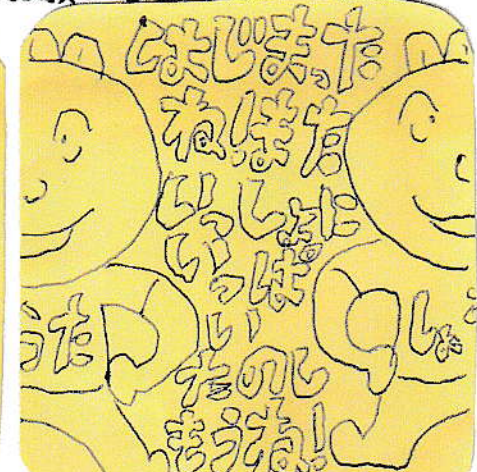 はじまった
ねぇまた
いっしょに
いっぱ
い
たのし
もうね!
うた
しょ